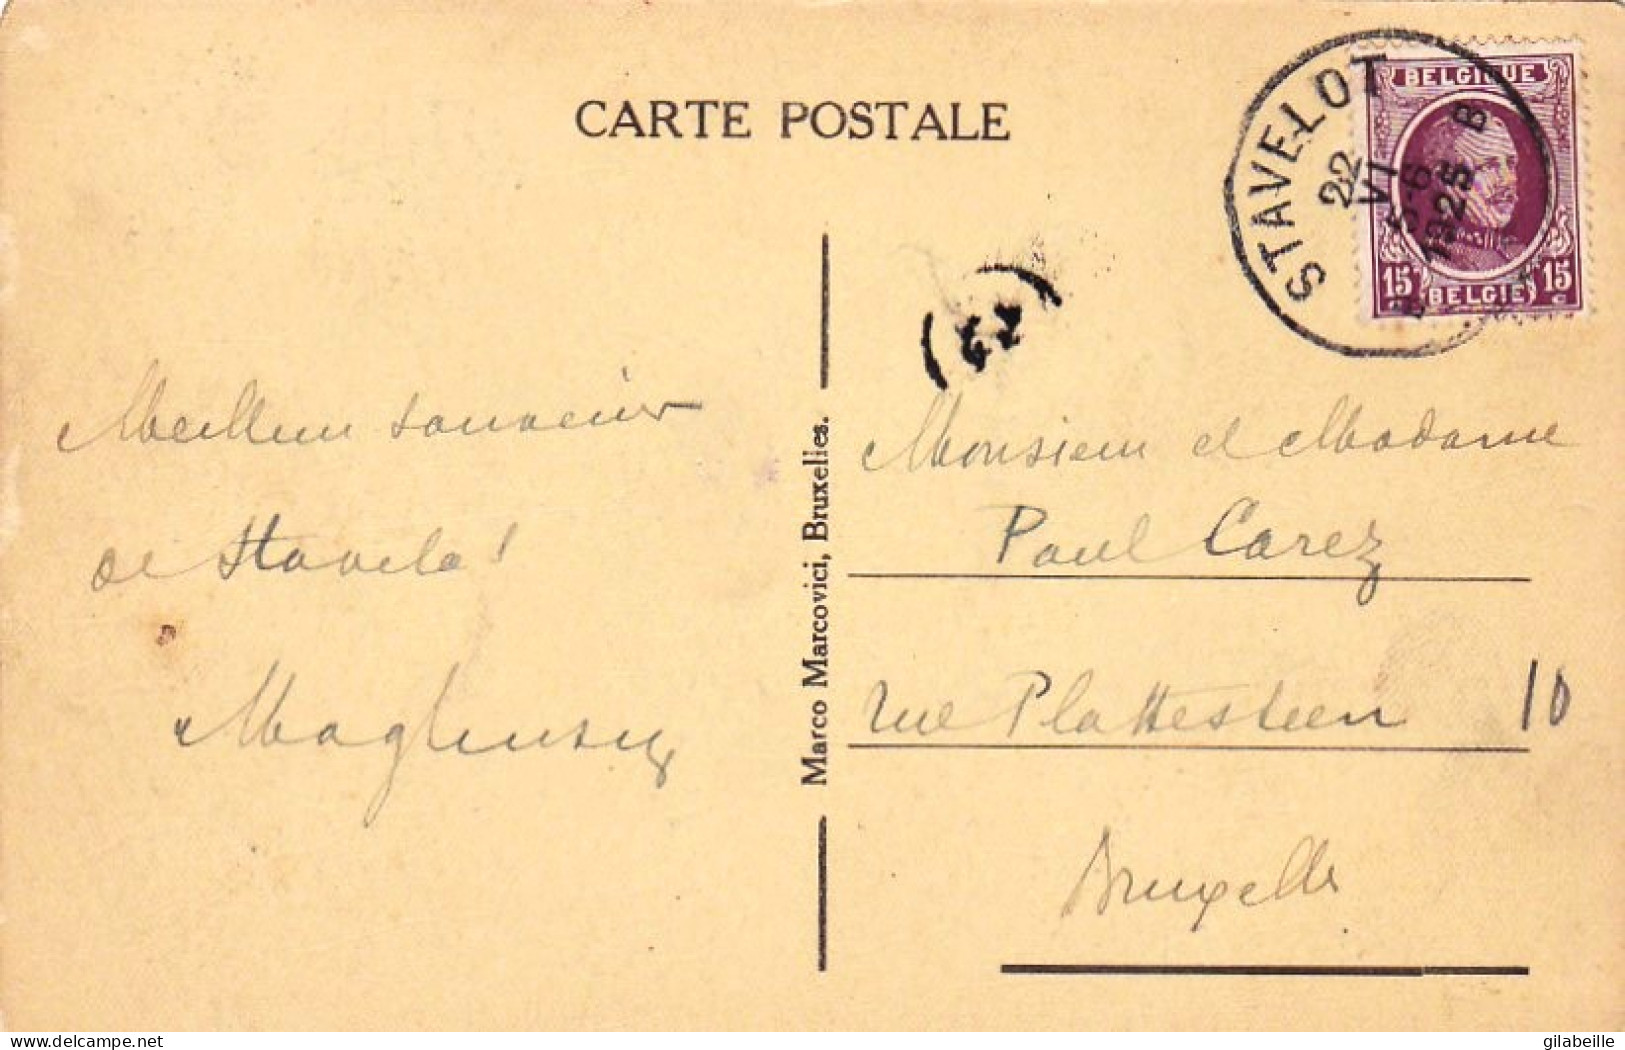 CARTE POSTALE
STAVELOT
22
VI
5-6
1925
B
BELGIQUE
15 15
BELGIE
Meilleur souvenir
de Stavelot
Marco Marcovici, Bruxelles.
Monsieur et Madame
Paul Carez
rue Plattesteen 10
Bruxelles
www.delcampe.net
gilabeille